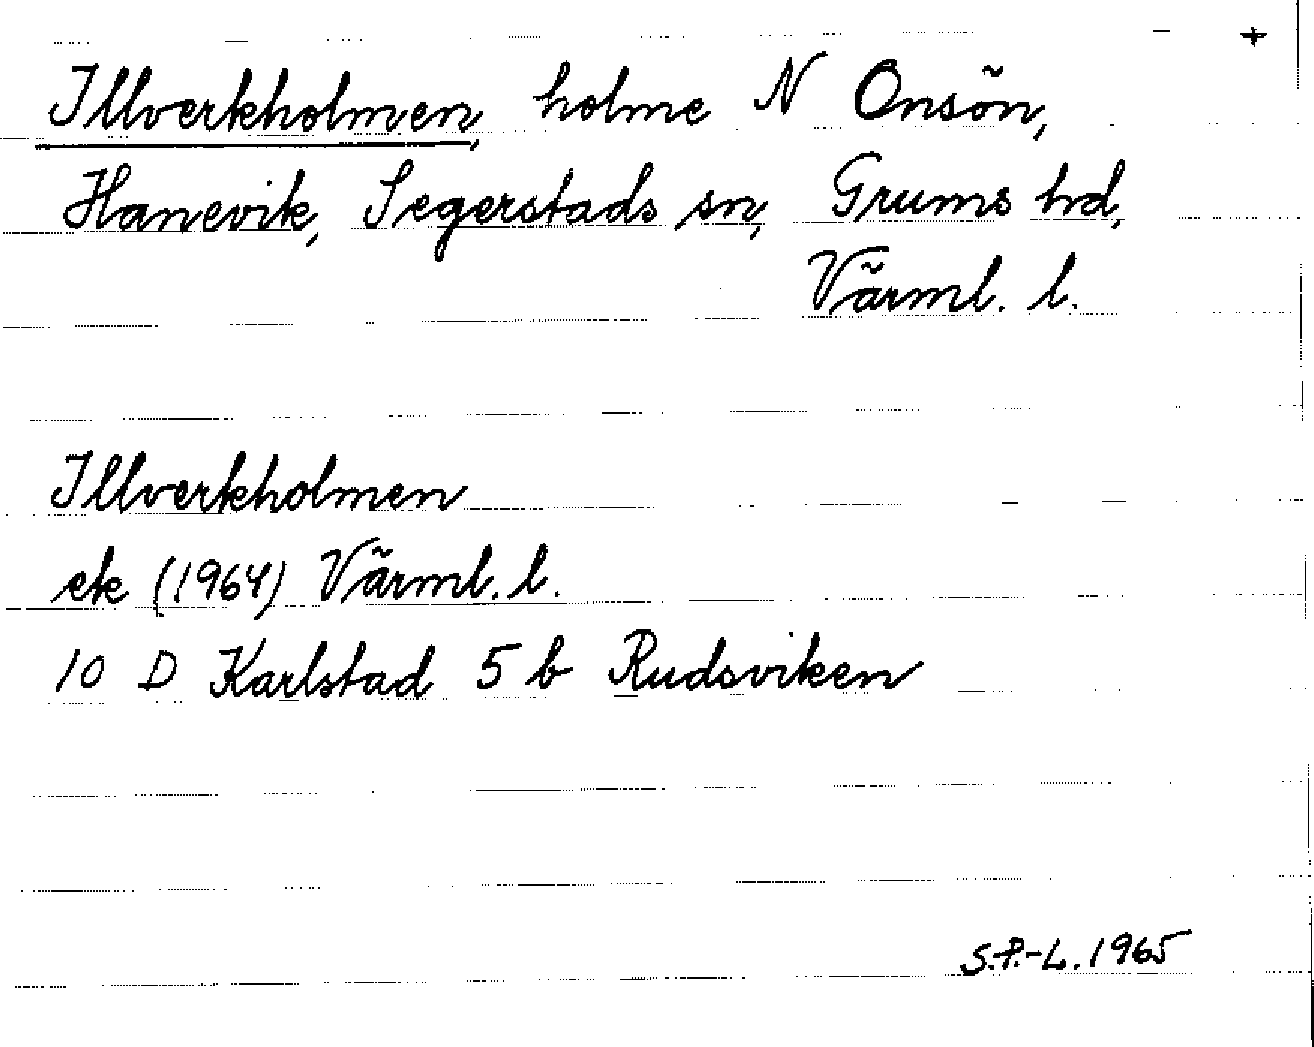 +
Illverkholmen, holme N Onsön,
Hanevik, Segerstads sn, Grums hd,
Värml. l.
Illverkholmen
ek (1964) Värml. l.
10 D Karlstad 5 b Rudsviken
S.P.-L. 1965